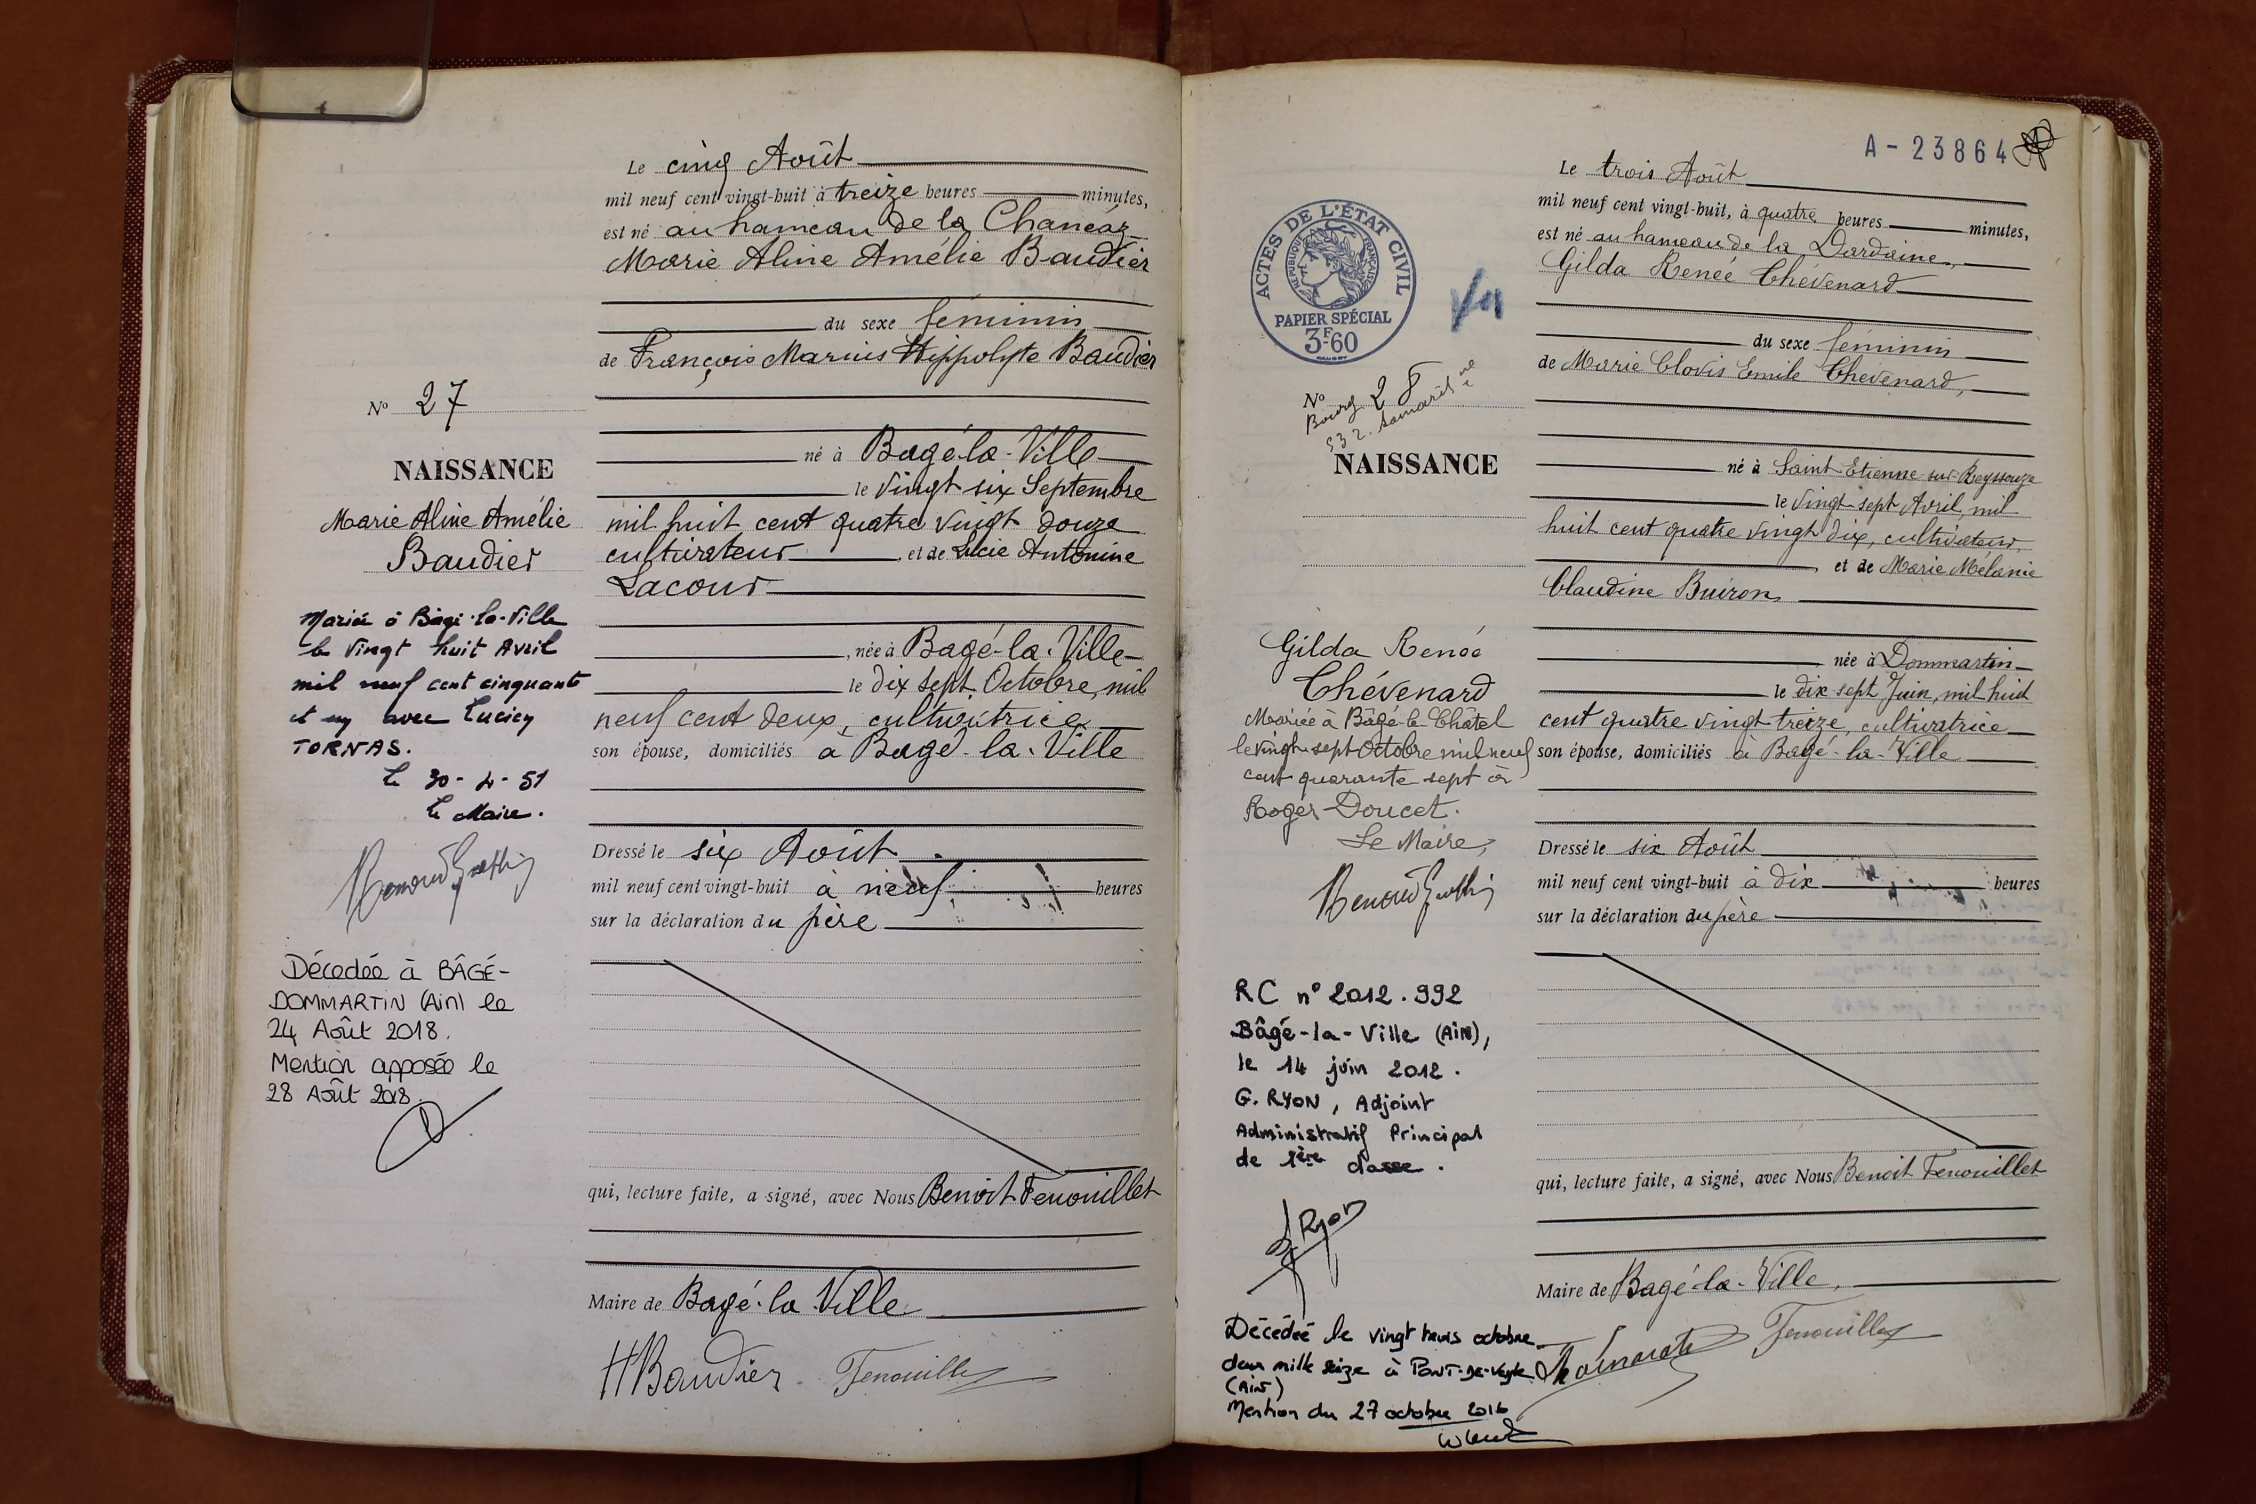 Le cinq Août
mil neuf cent vingt-huit à treize heures minutes,
est né au hameau de la Chanéaz
Marie Aline Amélie Baudier
du sexe féminin
de François Marius Hippolyte Baudier
No 27
né à Bagé-la-Ville
NAISSANCE
le vingt six Septembre
Marie Aline Amélie
Baudier
mil huit cent quatre vingt douze
cultivateur et de Lucie Antonine
Lacour
Mariée à Bâgé-la-Ville
le vingt huit Avril
mil neuf cent cinquante
et un avec Lucien
TORNAS.
Le 30-4-51
Le Maire.
née à Bagé-la-Ville
le dix sept Octobre mil
neuf cent deux, cultivatrice
son épouse, domiciliés à Bagé-la-Ville
Dressé le six Août
mil neuf cent vingt-huit à neuf heures
sur la déclaration du père
Décedée à BÂGÉ-
DOMMARTIN (Ain) le
24 Août 2018.
Mention apposée le
28 Août 2018.
qui, lecture faite, a signé, avec Nous Benoit Fenouillet
Maire de Bagé-la-Ville
HBaudier Fenouillet
A-23864
Le trois Août
mil neuf cent vingt-huit, à quatre heures minutes,
est né au hameau de la Dardaine,
Gilda Renée Chévenard
ACTES DE L'ÉTAT CIVIL
RÉPUBLIQUE FRANÇAISE
PAPIER SPÉCIAL
3F60
du sexe féminin
de Marie Clovis Emile Chévenard,
No 28
Bourg
532
NAISSANCE
né à Saint-Etienne-sur-Reyssouze
le vingt-sept Avril, mil
huit cent quatre vingt dix, cultivateur,
et de Marie Mélanie
Claudine Buiron,
Gilda Renée
Chévenard
Mariée à Bâgé-le-Châtel
le vingt-sept Octobre mil neuf
cent quarante sept à
Roger Doucet.
Le Maire,
née à Dommartin
le dix sept Juin, mil huit
cent quatre vingt treize, cultivatrice
son épouse, domiciliés à Bagé-la-Ville
Dressé le six Août
mil neuf cent vingt-huit à dix heures
sur la déclaration du père
RC n° 2012.992
Bâgé-la-Ville (AIN),
le 14 juin 2012.
G. RYON, Adjoint
Administratif Principal
de 1ère classe.
Ryon
qui, lecture faite, a signé, avec Nous Benoit Fenouillet
Maire de Bagé-la-Ville,
Fenouillet
Décédée le vingt trois octobre
deux mille seize à PONT-DE-VEYLE
(AIN)
Mention du 27 octobre 2016